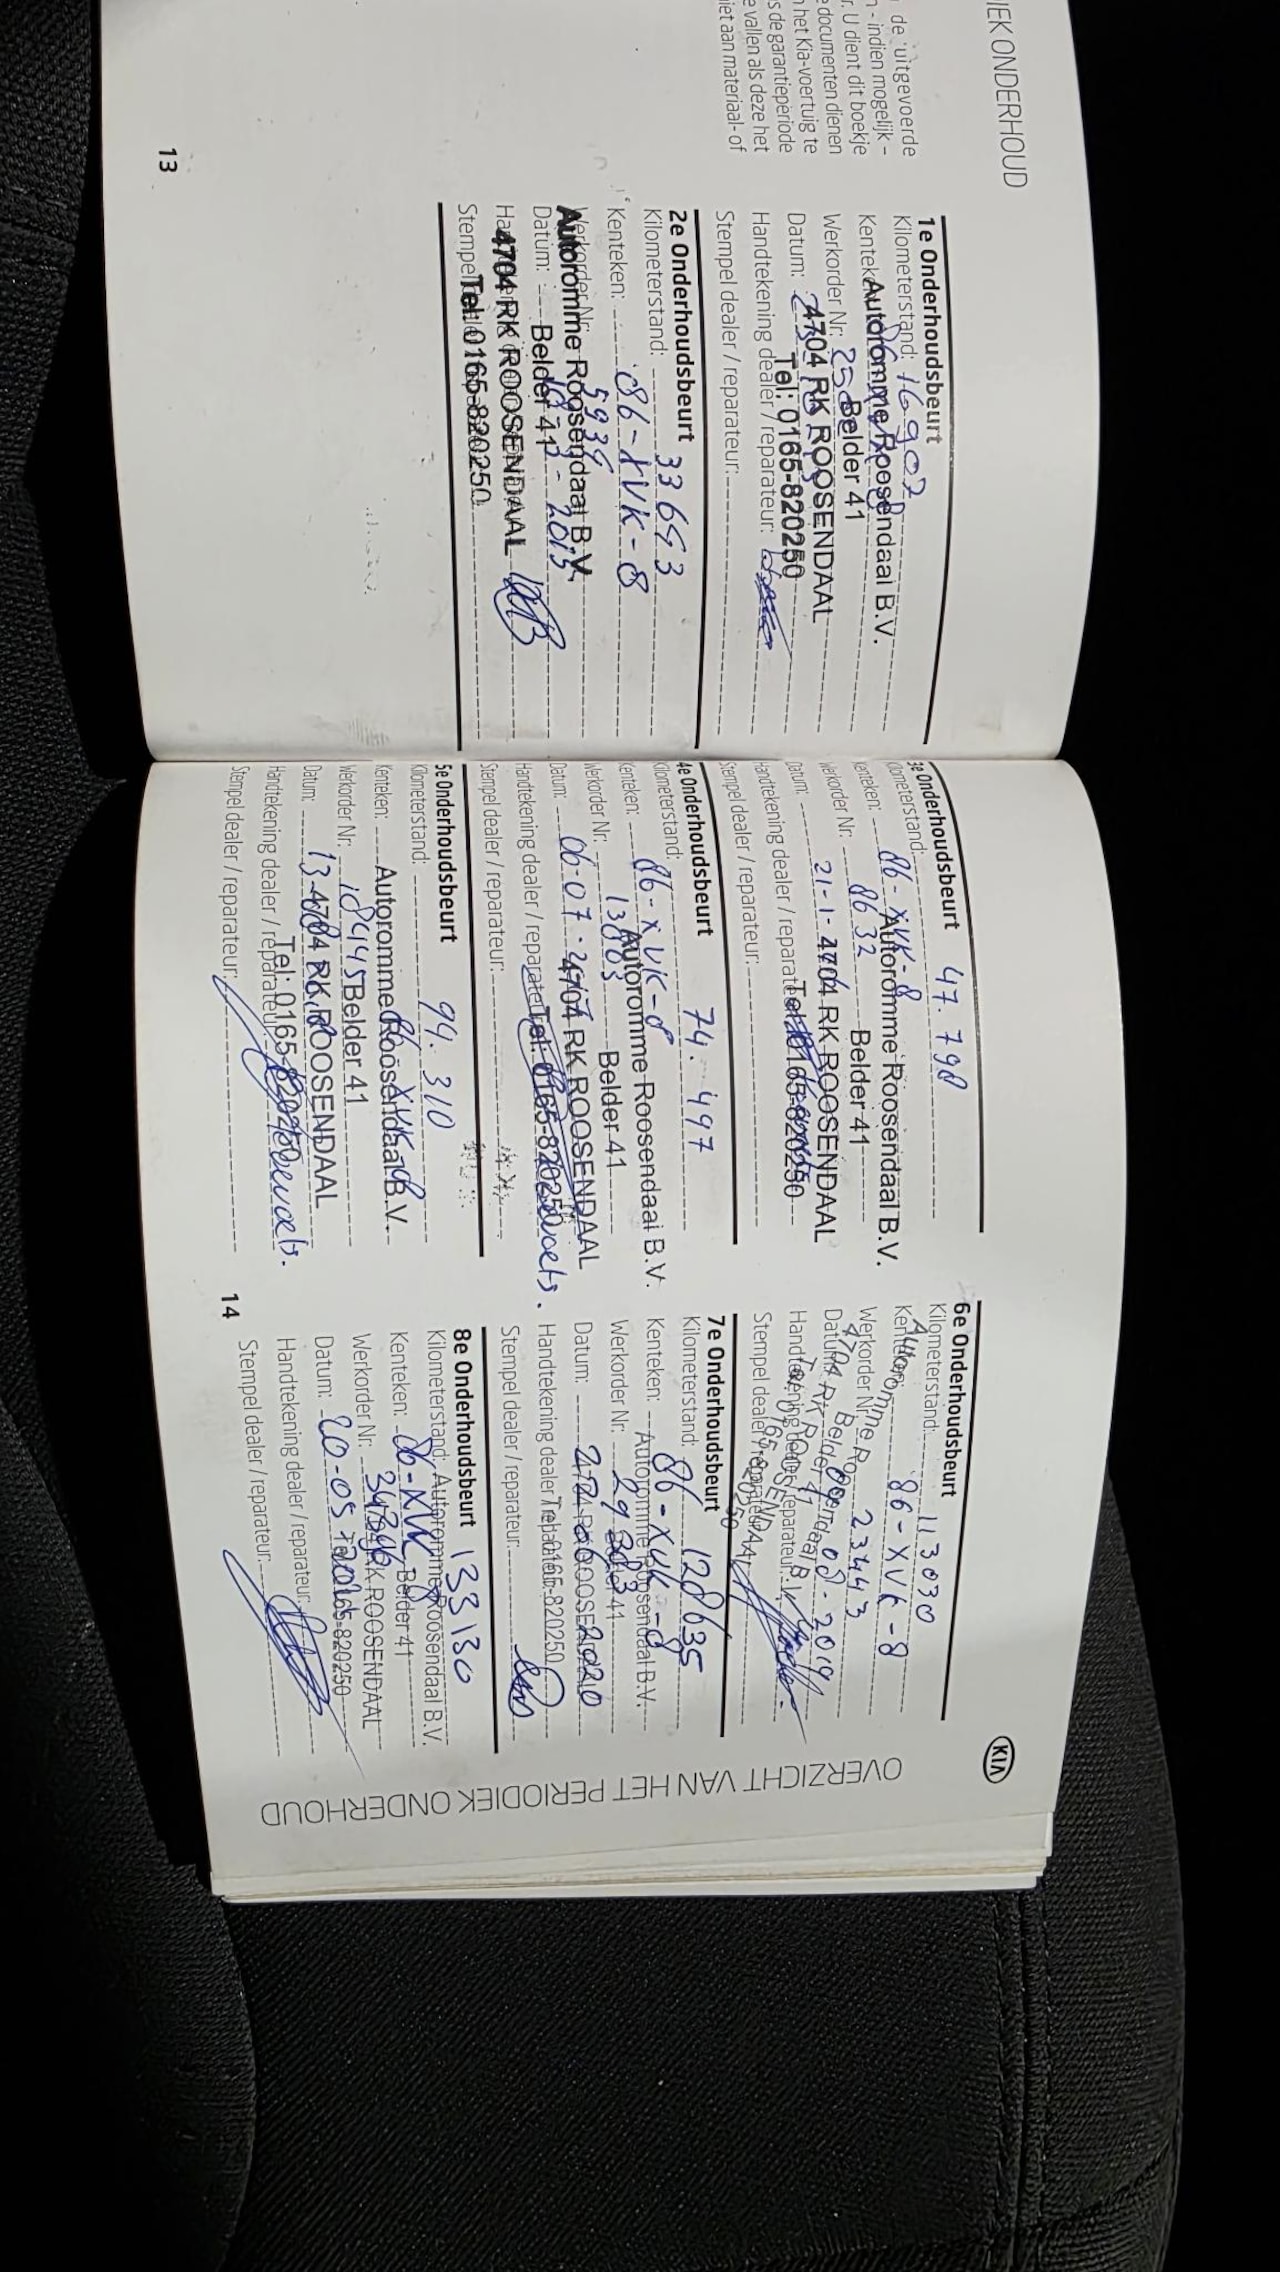 IEK ONDERHOUD
de uitgevoerde
n - indien mogelijk -
r. U dient dit boekje
documenten dienen
het Kia-voertuig te
s de garantieperiode
e vallen als deze het
iet aan materiaal- of
1e Onderhoudsbeurt
Kilometerstand: 16902
Autoromme Roosendaal B.V.
Werkorder Nr:
Belder 41
Datum:
4704 RK ROOSENDAAL
Handtekening dealer / reparateur:
Tel: 0165-820250
Stempel dealer / reparateur:
2e Onderhoudsbeurt
Kilometerstand: 33693
Kenteken: 86-XVK-8
Werkorder Nr: 5934
Autoromme Roosendaal B.V.
Datum: 2015
Belder 41
4704 RK ROOSENDAAL
Stempel
Tel: 0165-820250
13
3e Onderhoudsbeurt
Kilometerstand: 47.798
Kenteken: 86-XVK-8
Autoromme Roosendaal B.V.
Werkorder Nr: 8632
Belder 41
Datum: 21-1-
4704 RK ROOSENDAAL
Handtekening dealer / reparateur:
Tel: 0165-820250
Stempel dealer / reparateur:
4e Onderhoudsbeurt
Kilometerstand: 74.497
Kenteken: 86-XVK-8
Autoromme Roosendaal B.V.
Werkorder Nr: 13883
Belder 41
Datum: 06-07-
4704 RK ROOSENDAAL
Handtekening dealer / reparateur:
Tel: 0165-820250
Stempel dealer / reparateur:
5e Onderhoudsbeurt
Kilometerstand: 94.310
Kenteken: 86-XVK-8
Autoromme Roosendaal B.V.
Werkorder Nr: 18445
Belder 41
Datum: 13-
4704 RK ROOSENDAAL
Handtekening dealer / reparateur:
Tel: 0165-820250
Stempel dealer / reparateur:
6e Onderhoudsbeurt
Kilometerstand: 113030
Kenteken: 86-XVK-8
Autoromme Roosendaal B.V.
Werkorder Nr: 23443
Belder 41
Datum: 08-2019
4704 RK ROOSENDAAL
Handtekening dealer / reparateur:
Tel: 0165-820250
Stempel dealer / reparateur:
7e Onderhoudsbeurt
Kilometerstand: 128635
Kenteken: 86-XVK-8
Autoromme Roosendaal B.V.
Werkorder Nr: 29383
Belder 41
Datum: 2020
4704 RK ROOSENDAAL
Handtekening dealer / reparateur:
Tel: 0165-820250
Stempel dealer / reparateur:
8e Onderhoudsbeurt
Kilometerstand: 133130
Autoromme Roosendaal B.V.
Kenteken: 86-XVK-8
Belder 41
Werkorder Nr: 34396
4704 RK ROOSENDAAL
Datum: 20-05-
Tel: 0165-820250
Handtekening dealer / reparateur:
Stempel dealer / reparateur:
14
KIA
OVERZICHT VAN HET PERIODIEK ONDERHOUD